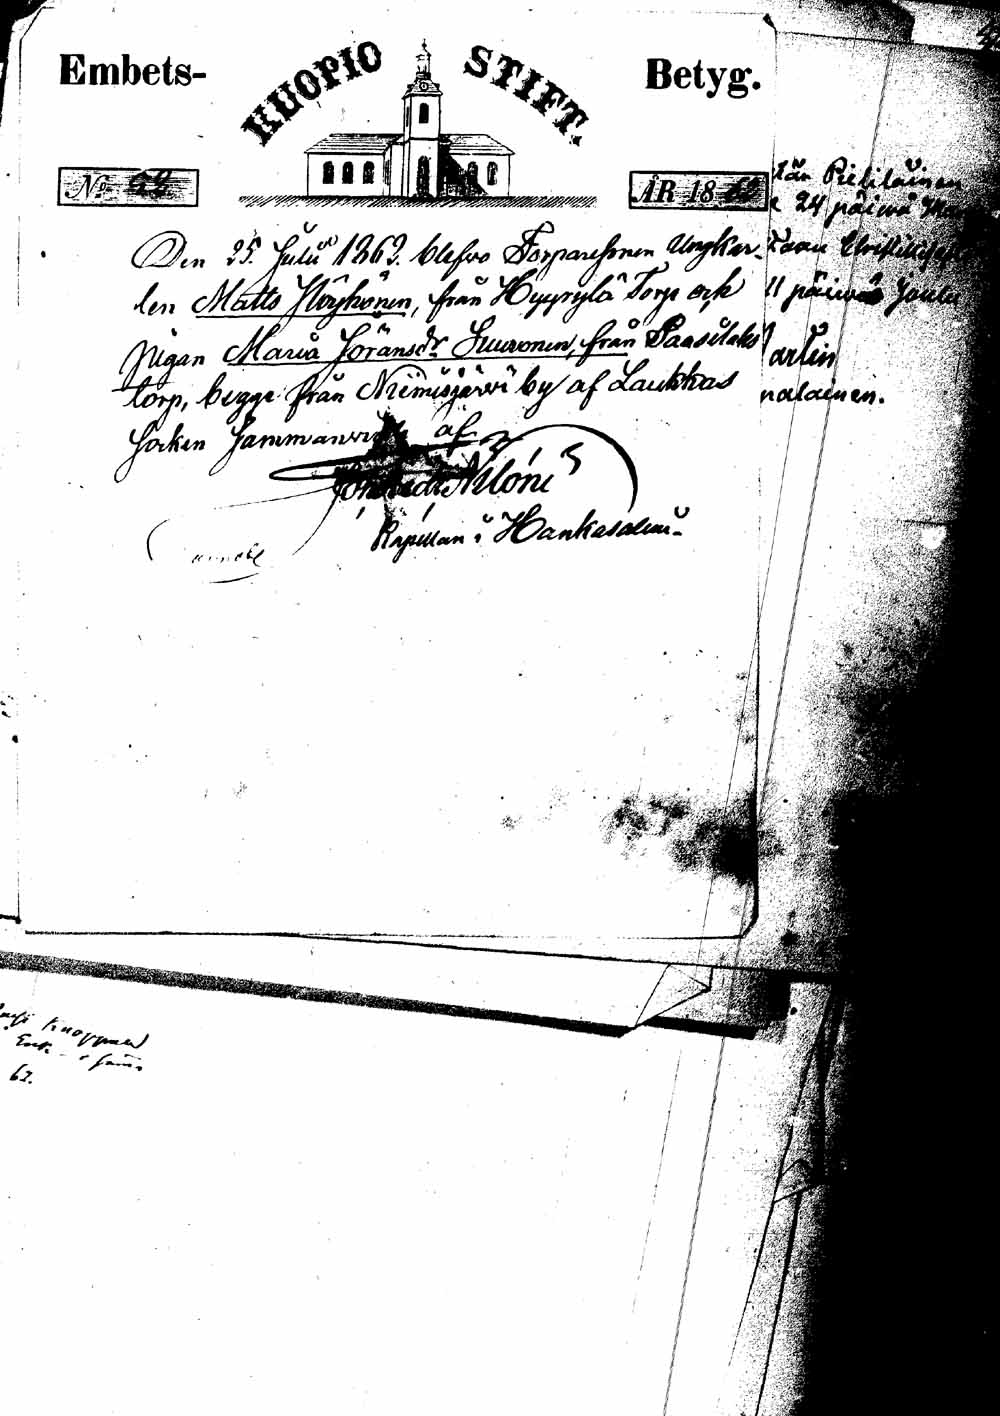 Embets-
KUOPIO STIFT.
Betyg.
No 62
ÅR 1862
Den 25 Julii 1862. blefvo Torparesonen Ungkar-
len Matts Höykönen, från Hyyrylä Torp och
pigan Maria Göransdr Suuronen, från Paasilaks
torp, begge från Niemisjärvi by af Laukkas
Socken Sammanvigde af
Niloni
Kapellan i Hankasalmi
tän Pielitäinen
24 päivä
11 päivä Joulu
nalainen.
62.